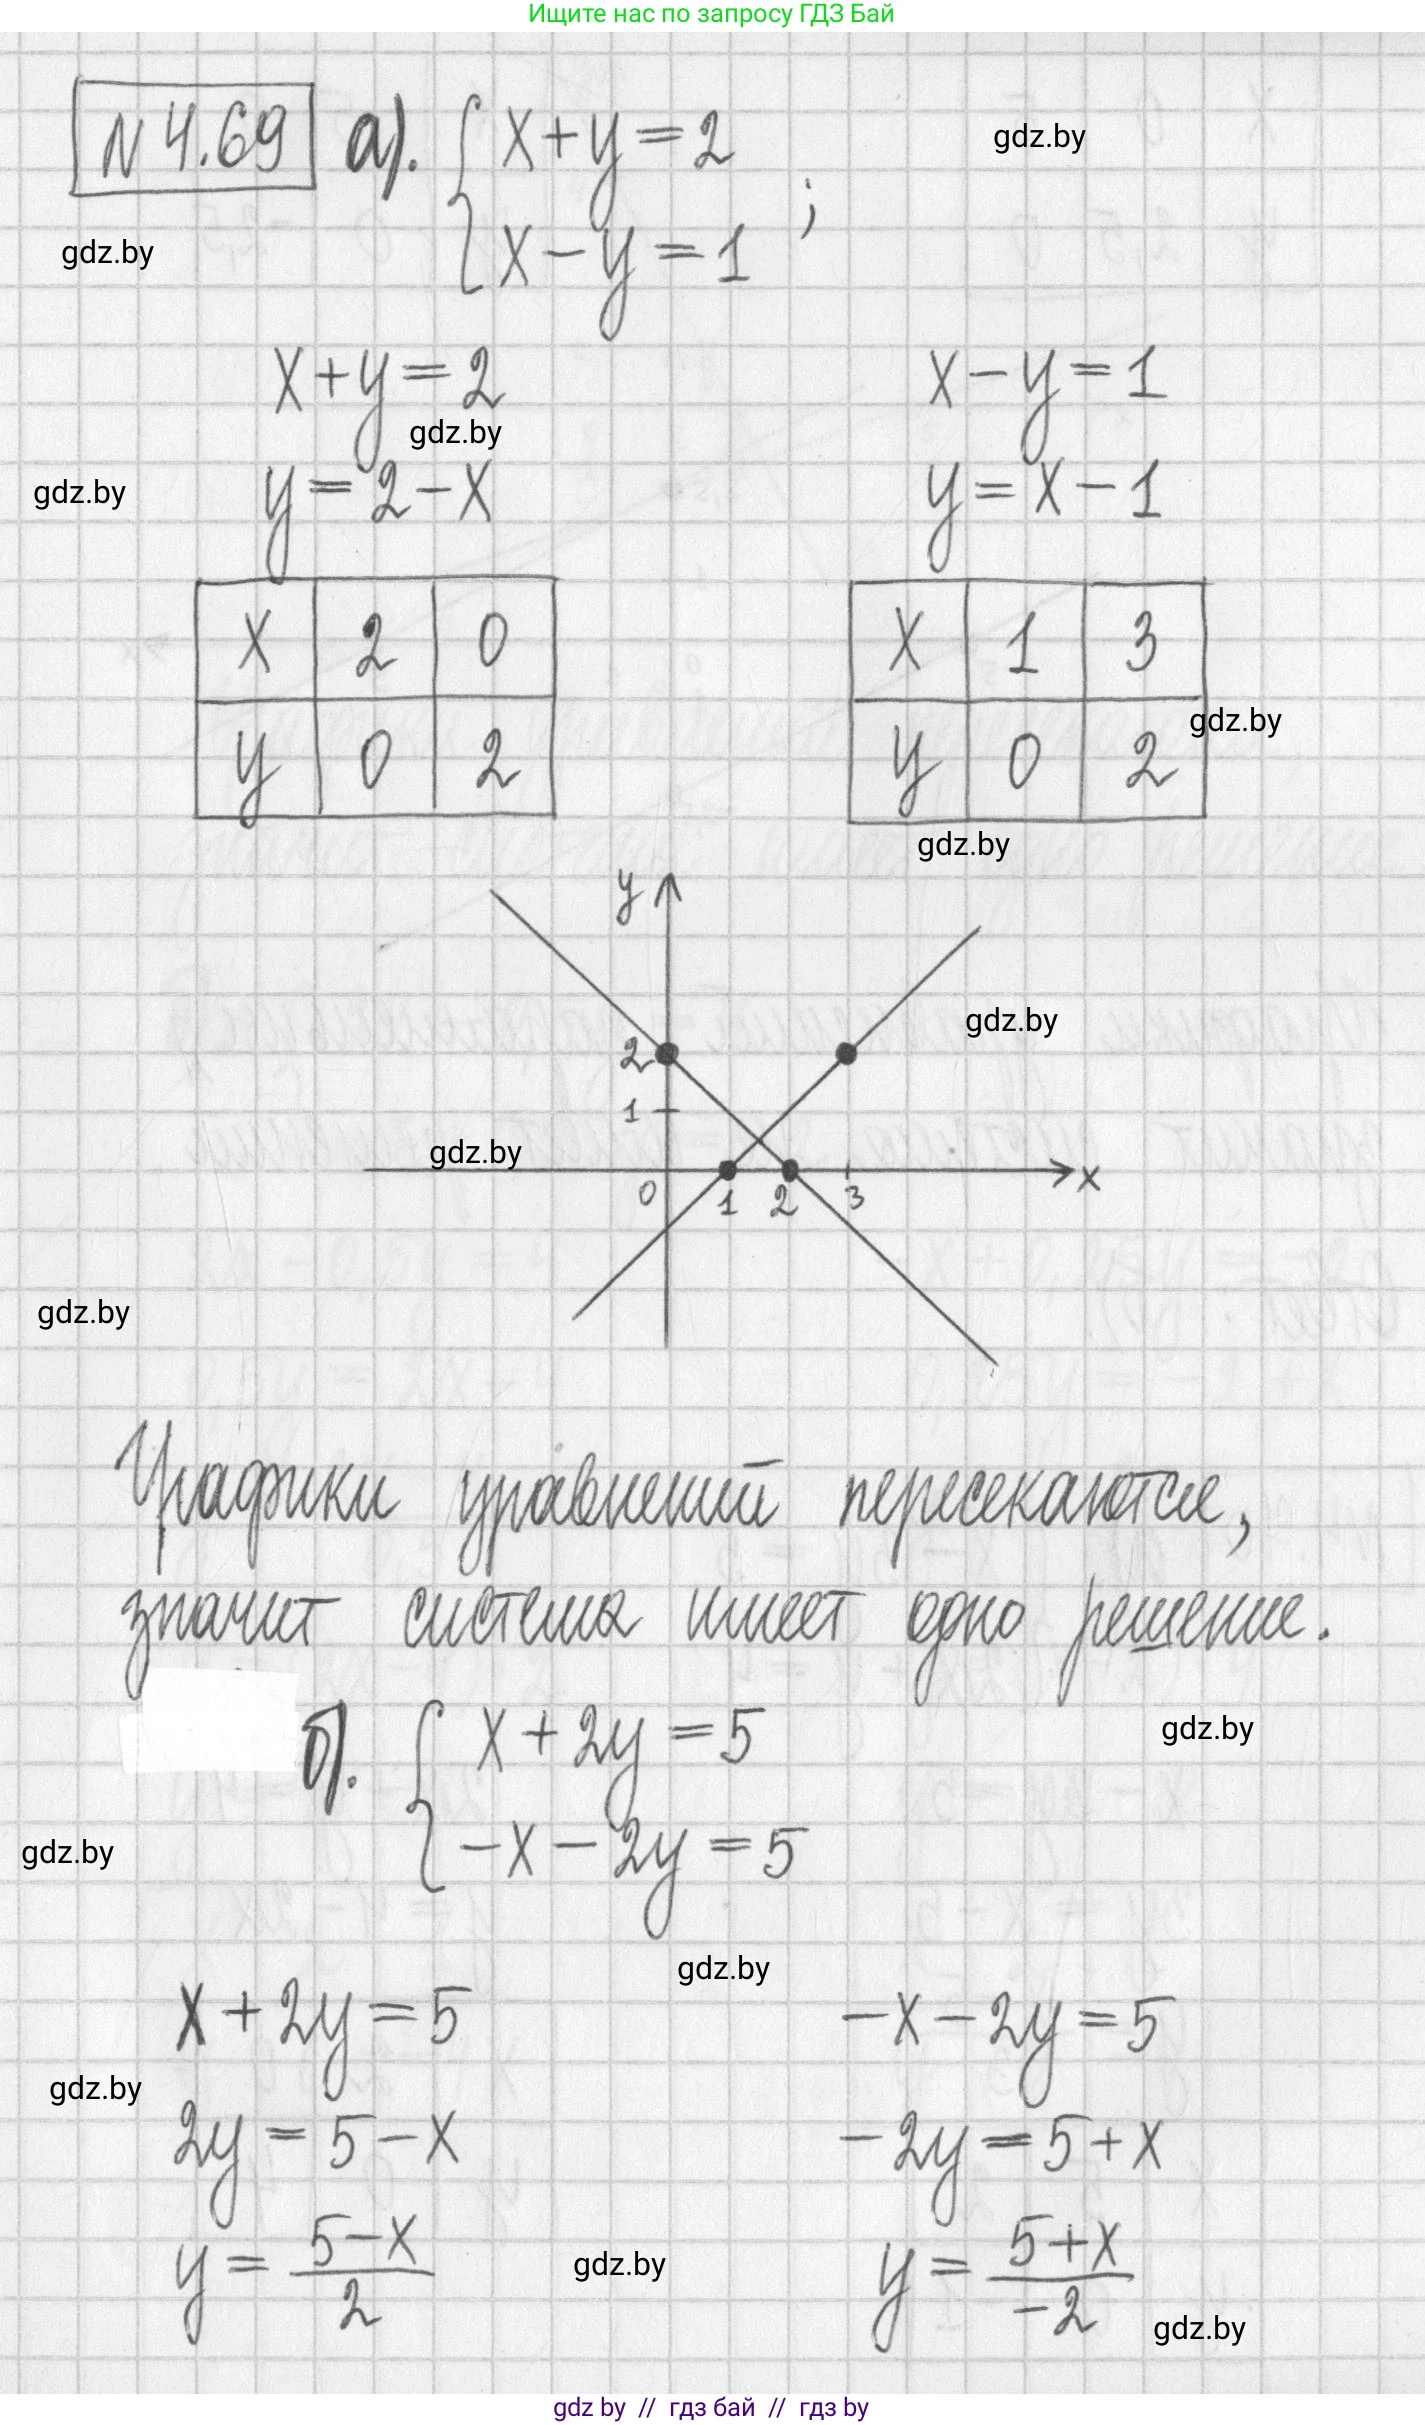 Ищите нас по запросу ГДЗ Бай
N 4.69 а). { x+y=2
gdz.by
gdz.by
x-y=1 ;
x+y=2 x-y=1
gdz.by
gdz.by
y=2-x y=x-1
x 2 0 x 1 3
gdz.by
y 0 2 y 0 2
gdz.by
y
gdz.by
2
1
gdz.by
0 1 2 3 x
gdz.by
Графики уравнений пересекаются,
значит система имеет одно решение.
б). { x+2y=5
gdz.by
-x-2y=5
gdz.by
gdz.by
x+2y=5 -x-2y=5
gdz.by
2y=5-x -2y=5+x
y=\frac{5-x}{2} y=\frac{5+x}{-2}
gdz.by
gdz.by
gdz by // гдз бай // гдз by